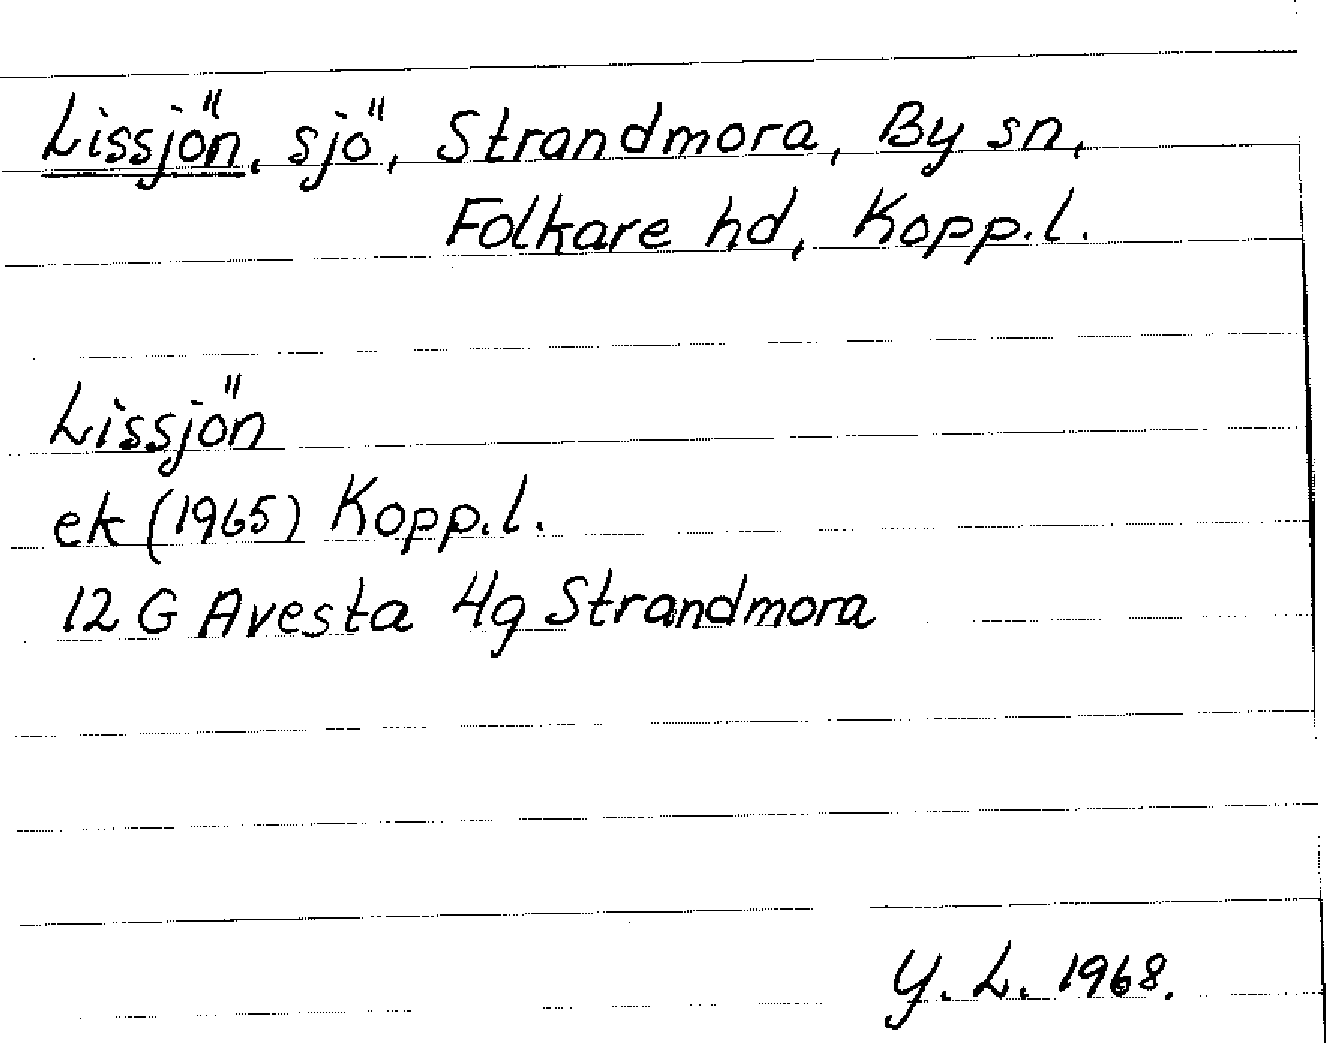 Lissjön, sjö, Strandmora, By sn,
Folkare hd, Kopp.l.
Lissjön
ek (1965) Kopp.l.
12 G Avesta 4g Strandmora
Y. L. 1968.